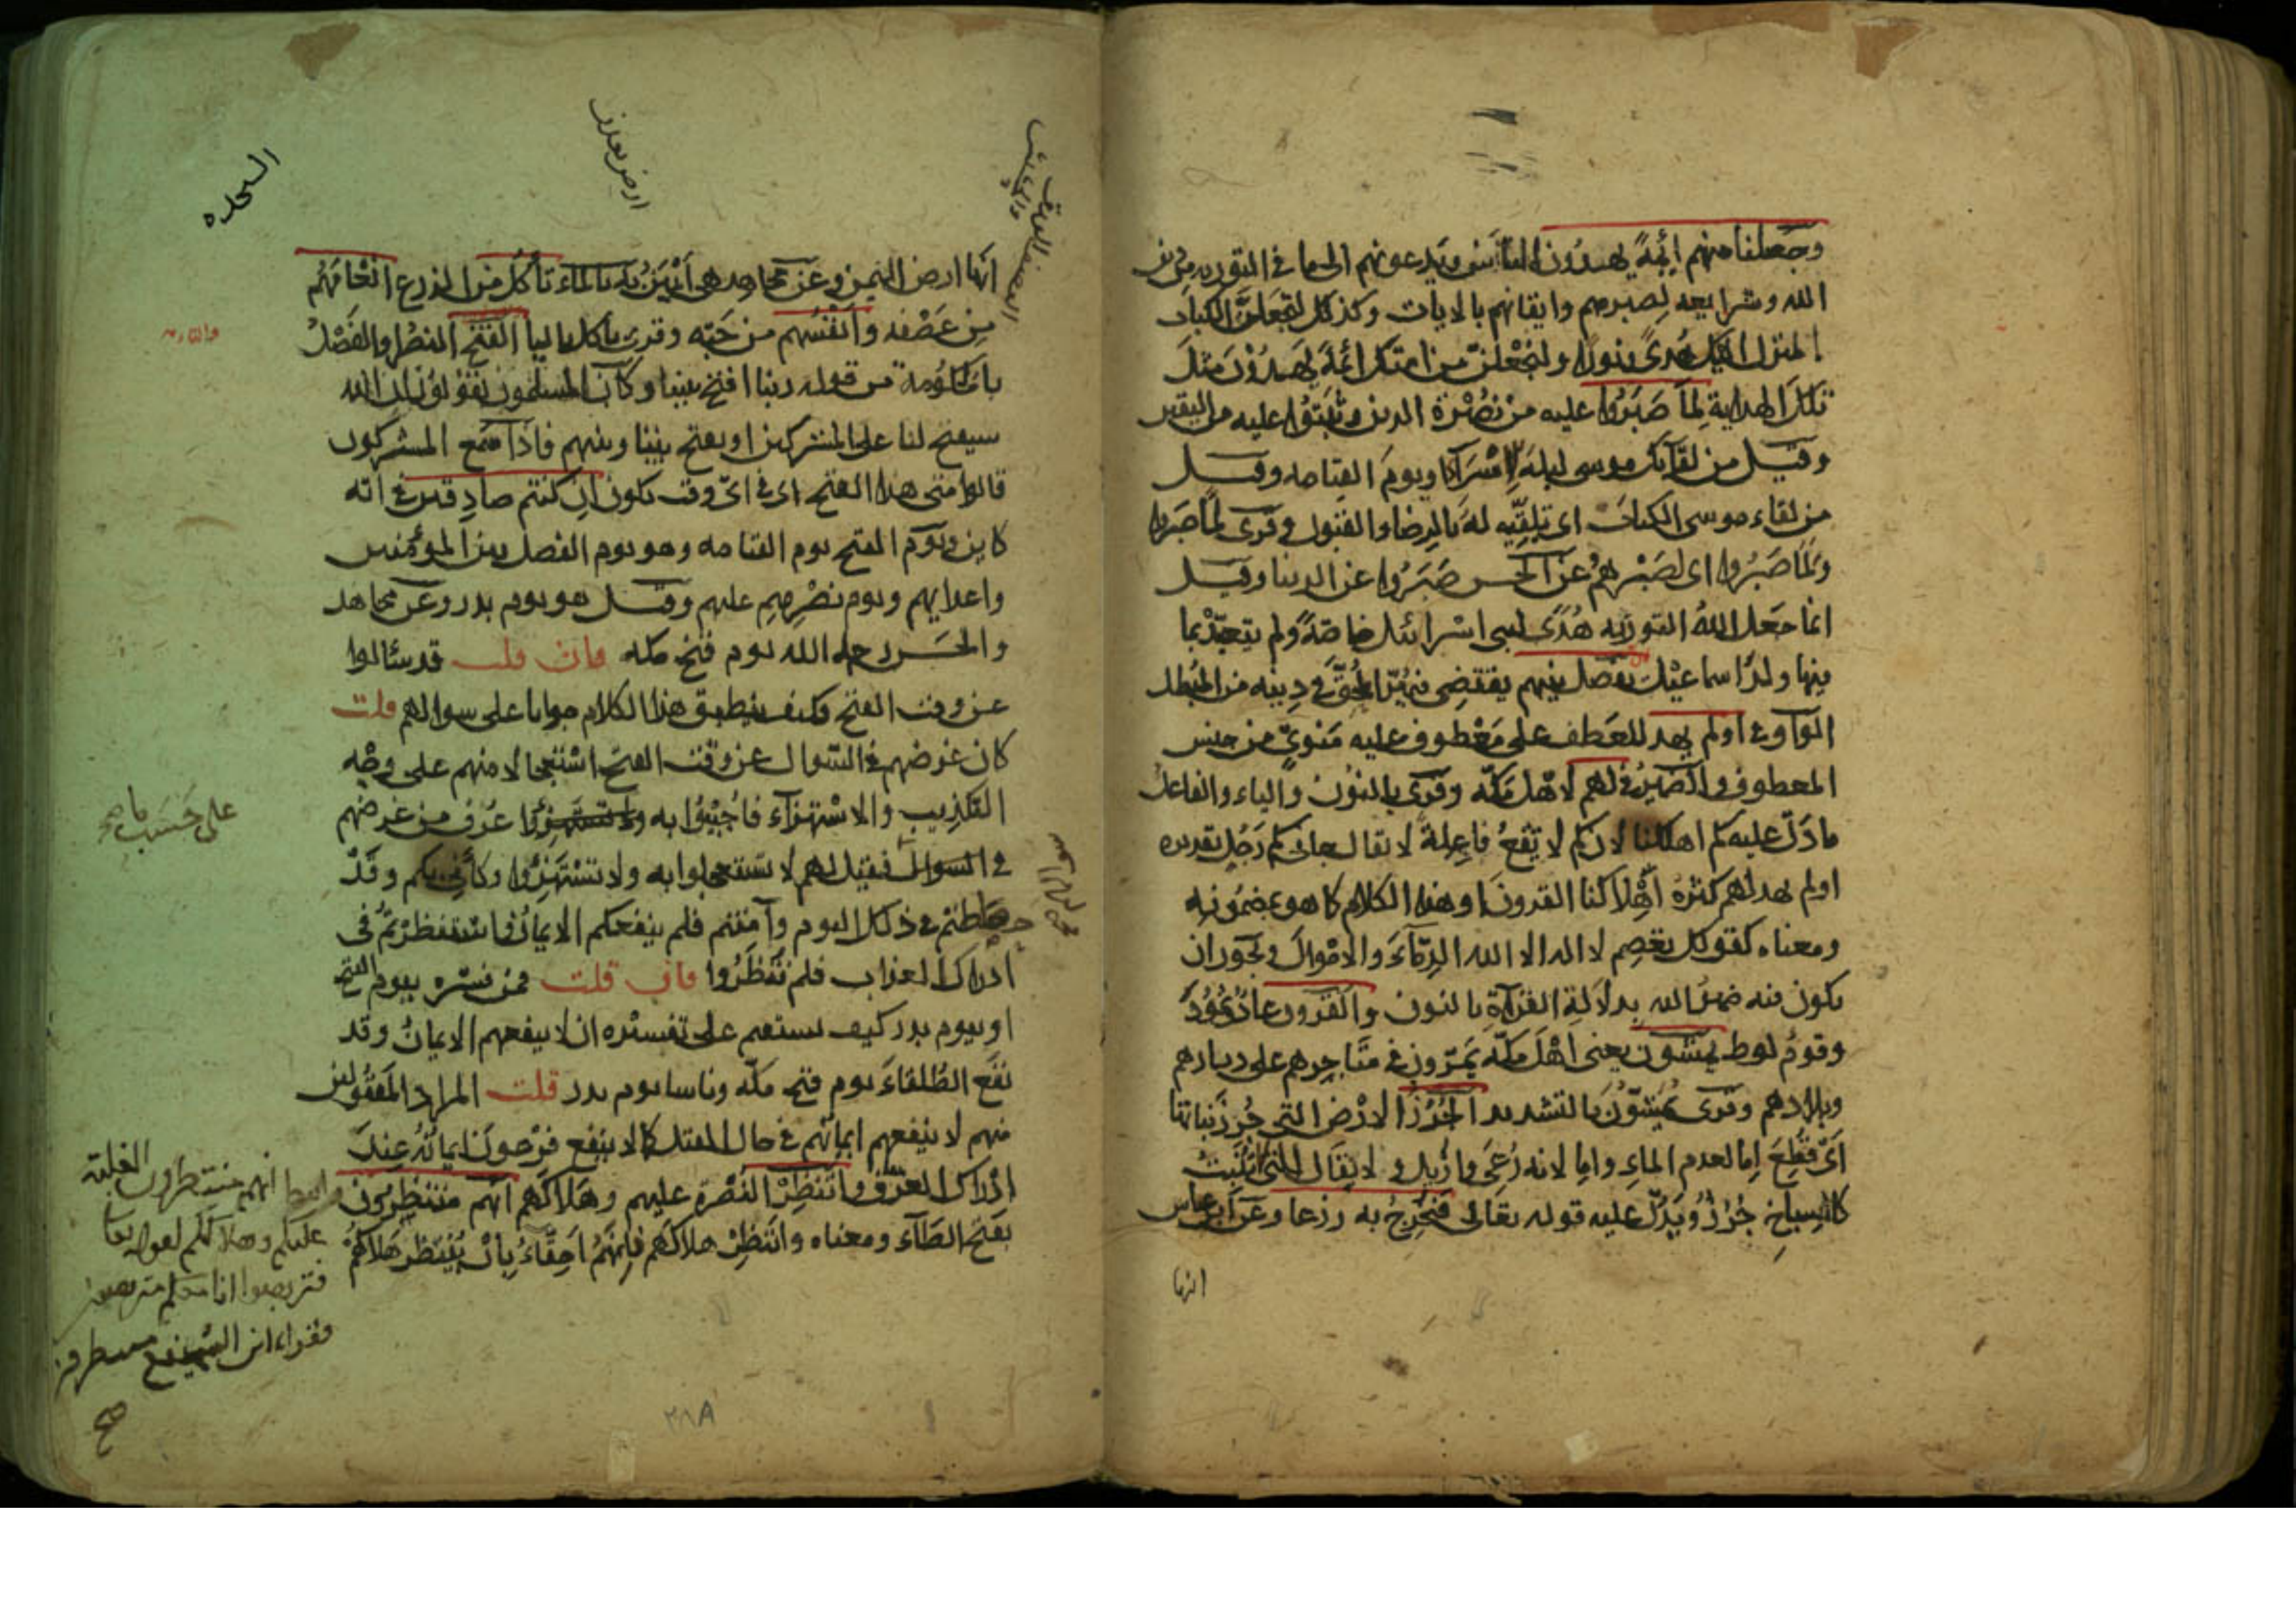 وجعلنا منهم ائمة يهدون الناس ويدعونهم الى ما في التورية من دين
الله وشرايعه لصبرهم وايقانهم بالايات وكذلك لنجعلن الكتاب
المنزل اليك هدى ونورا ولنجعلن من امتك ائمة يهدون مثل
تلك الهداية لما صبروا عليه من نصرة الدين وثبتوا عليه من اليقين
وقيل من لقائك موسى ليلة الاسراء ويوم القيامه وقيل
من لقاء موسى الكتاب اى تلقيه له بالرضا والقبول وقرى لما صبروا
ولما صبروا اى لصبرهم وعن الحسن صبروا عن الدنيا وقيل
انما جعل الله التورية هدى لبنى اسرائيل خاصة ولم يتعبد بما
فيها ولد اسماعيل يفصل بينهم يقتضى فيميز المحق في دينه من المبطل
الواو في اولم يهد للعطف على معطوف عليه منوى من جنس
المعطوف والضمير في لهم لاهل مكة وقرى بالنون والياء والفاعل
ما دل عليه كم اهلكنا لان كم لا تقع فاعلة لا يقال جانى كم رجل تقديره
اولم يهد لهم كثرة اهلاكنا القرون او هذا الكلام كما هو بمضمونه
ومعناه كقولك يعصم لا اله الا الله الدماء والاموال ويجوز ان
يكون فيه ضمير الله بدلالة القراة بالنون والقرون عاد وثمود
وقوم لوط يمشون يعنى اهل مكة يمرون في متاجرهم على ديارهم
وبلادهم وقرى يمشون بالتشديد الجرز الارض التى جرز نباتها
اى قطع اما لعدم الماء واما لانه رعى وازيل ولا يقال للتى لا تنبت
كالسباخ جرز ويدل عليه قوله تعالى فنخرج به زرعا وعن ابن عباس
انها
السجده
انها ارض اليمن وعن مجاهد هى ابين به بالماء تاكل من الزرع انعامهم
من عصفه وانفسهم من حبه وقرى ياكل باليا الفتح النصر او الفصل
بالحكومة من قوله ربنا افتح بيننا وكان المسلمون يقولون ان الله
سيفتح لنا على المشركين او يفتح بيننا وبينهم فاذا سمع المشركون
قالوا متى هذا الفتح اى في اى وقت يكون ان كنتم صادقين في انه
كاين ويوم الفتح يوم القيامه وهو يوم الفصل بين المؤمنين
واعدايهم ويوم نصرهم عليهم وقيل هو يوم بدر وعن مجاهد
والحسن رحمه الله يوم فتح مكه فان قلت قد سئالوا
عن وقت الفتح فكيف ينطبق هذا الكلام جوابا على سوالهم قلت
كان غرضهم في السوال عن وقت الفتح استعجالا منهم على وجه
التكذيب والاستهزاء فاجيبوا به عرف من غرضهم
في السوال فقيل لهم لا تستعجلوا به ولا تستهزوا وكانى بكم وقد
حصلتم في ذلك اليوم وآمنتم فلم ينفعكم الايمان واستنظرتم في
ادراك العذاب فلم تنظروا فان قلت فمن فسره بيوم الفتح
او بيوم بدر كيف يستقيم على تفسيره ان لا ينفعهم الايمان وقد
نفع الطلقاء يوم فتح مكة وناسا يوم بدر قلت المراد المقتولين
منهم لا ينفعهم ايمانهم في حال القتل كما لا ينفع فرعون ايمانه عند
ادراك الغرق وانتظر النصرة عليهم وهلاكهم انهم منتظرون
بفتح الظاء ومعناه وانتظر هلاكهم فانهم احقاء بان ينتظر هلاكهم
على حسب ما
انهم منتظرون الغلبة
عليكم وهلاككم لقوله تعا
فتربصوا انا معكم متربصين
وقراء ابن السميفع منتظرون
صح
٣٨٨